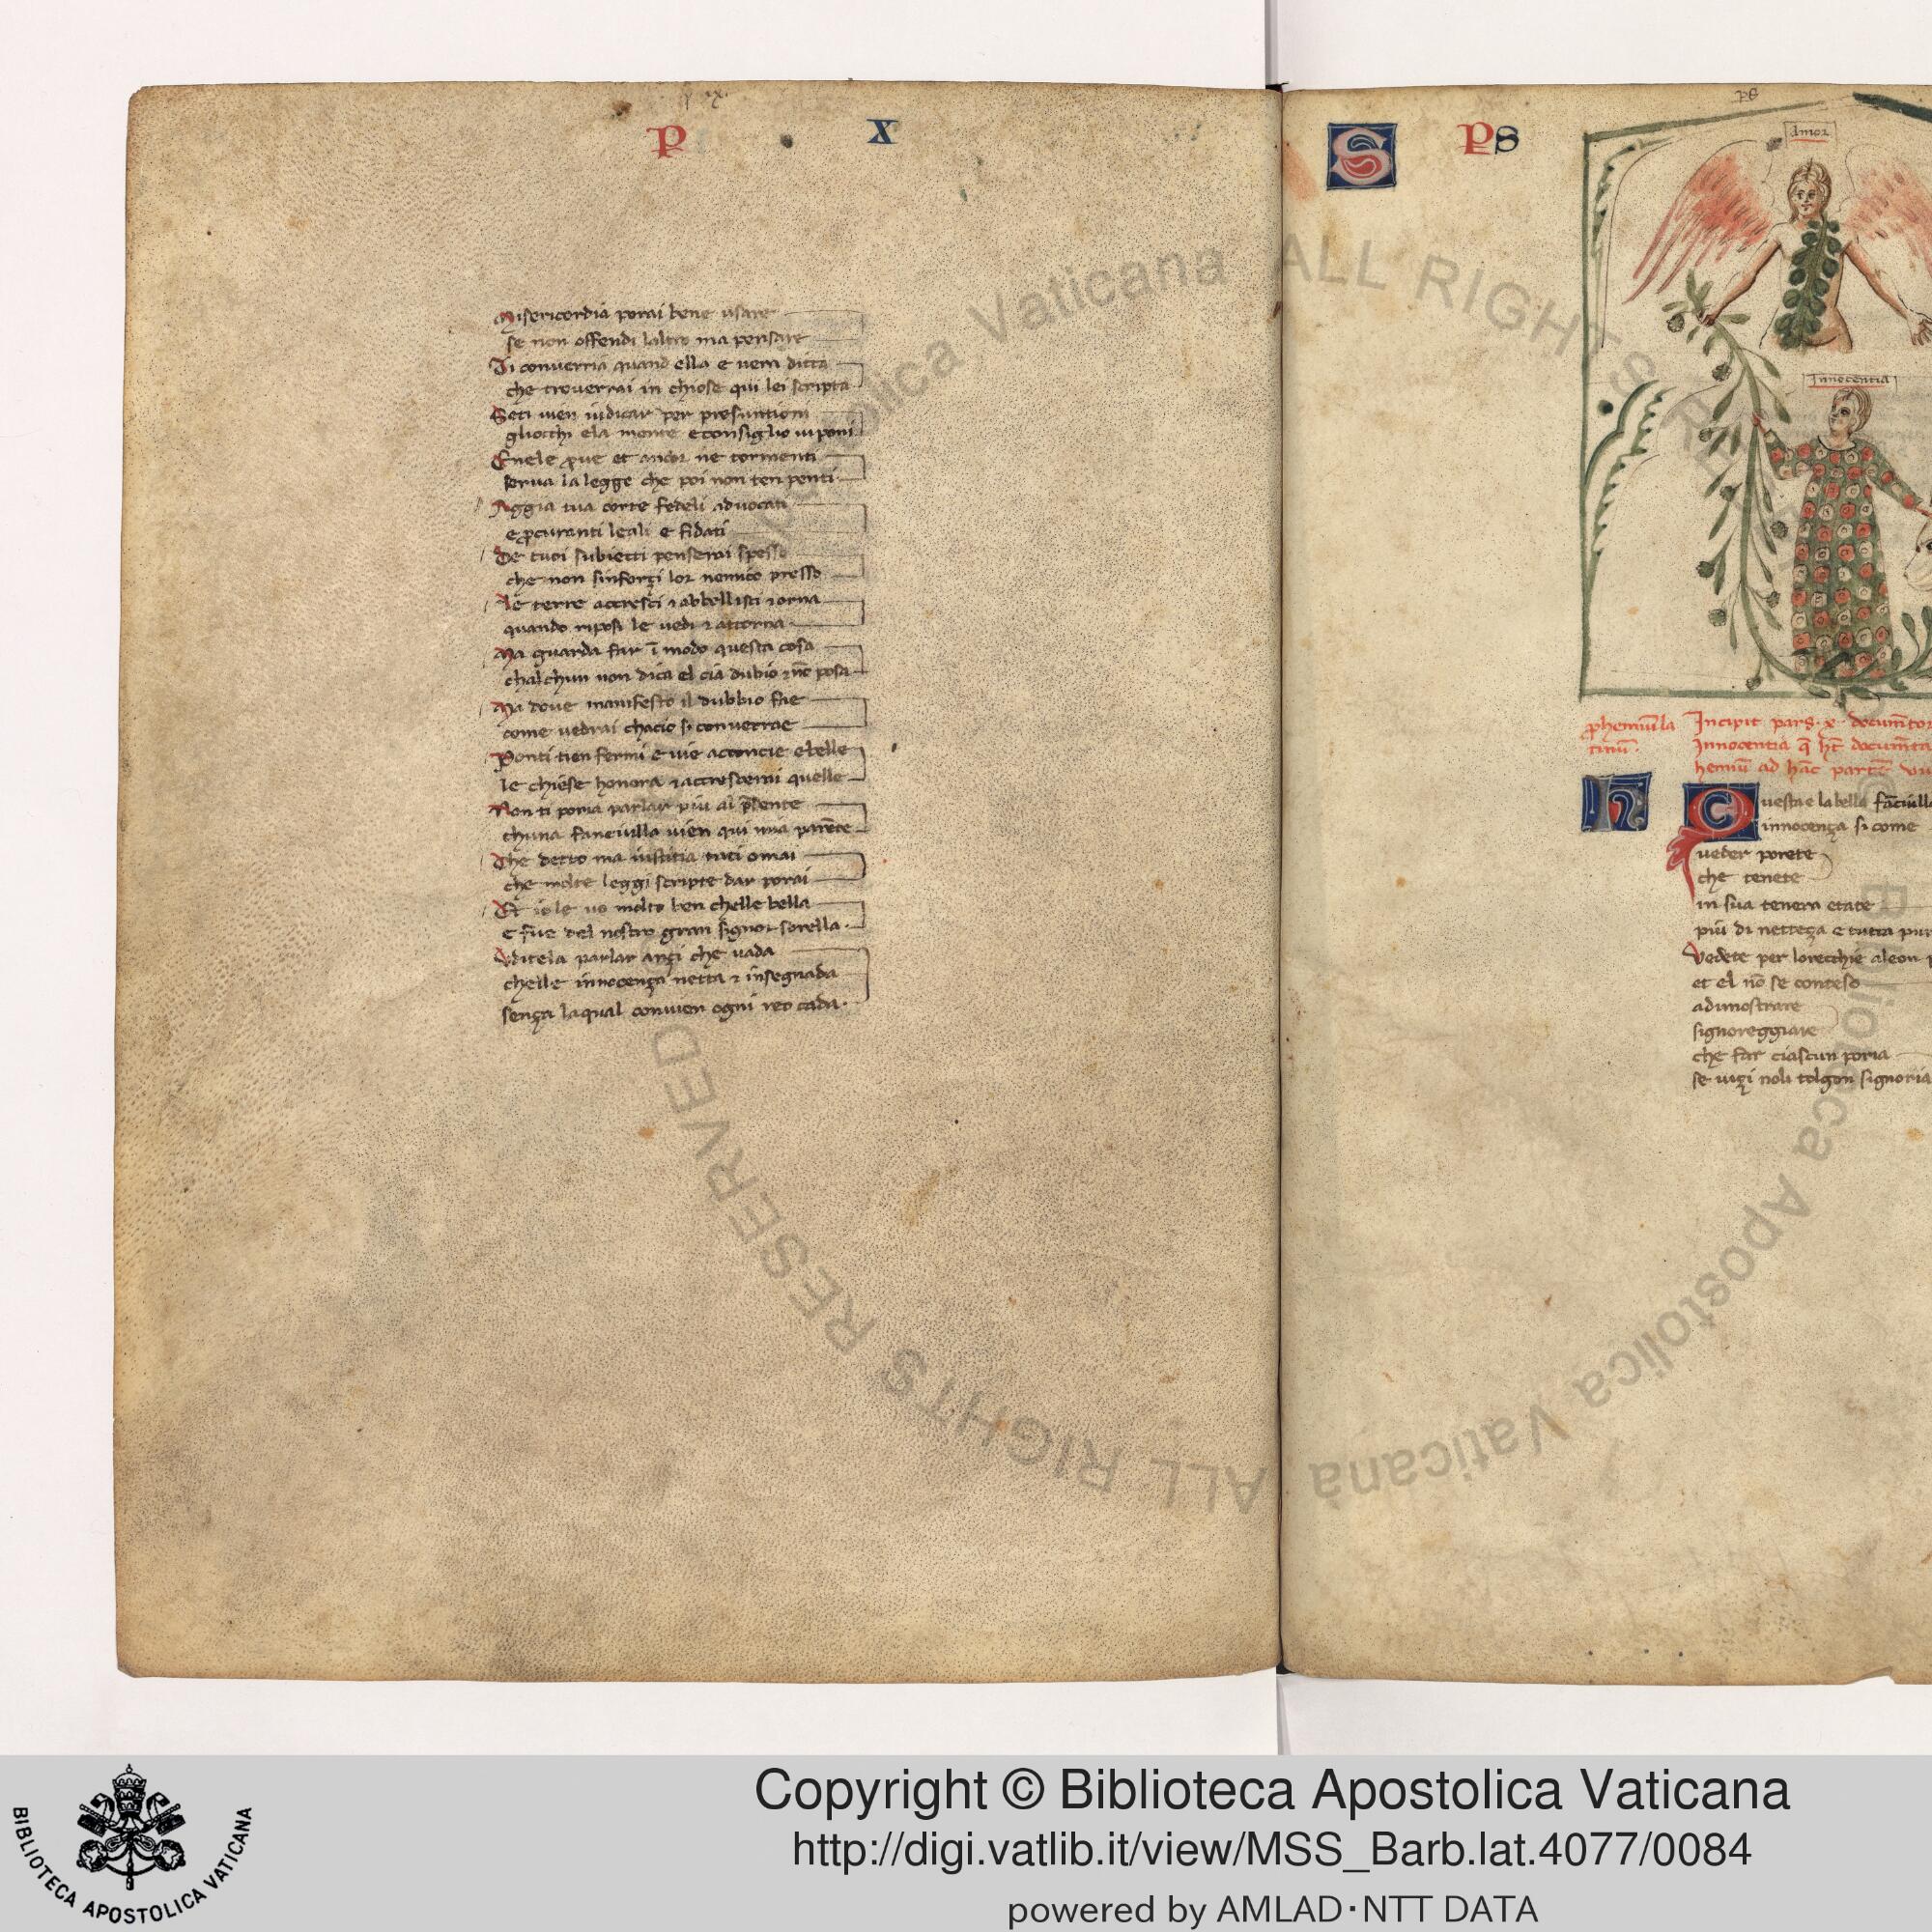 P X
Misericordia porai bene usare
se non offendi laltro ma pensare
Ti converria quand ella e vera ditta
che troverrai in chiose qui lei scripta
Seti vien iudicar per presuntioni
gliocchi ela mente econsiglio vi poni
Enele prove et ancor ne tormenti
serva la legge che poi non ten penti
Aggia tua corte fedeli advocati
e p̱curanti leali e fidati
De tuoi subietti penserai spesso
che non sinforçi lor nemico presso
Le terre accresci ⁊ abbellisci ⁊ orna
quando riposi le vedi ⁊ attorna
Ma guarda far ī modo questa cosa
chalchun non dica el cia dubio ⁊ nō posa
Ma dove manifesto il dubbio fae
come vedrai chacio si converrae
Ponti tien fermi e vie acconcie e belle
le chiese honora ⁊ accrescerai quelle
Non ti poria parlar piu al p̄sente
chuna fanciulla vien qui mia parēte
Che detto ma iustitia taci omai
che molte leggi scripte dar porai
Et io le vo molto ben chelle bella
e fue del nostro gran signor sorella.
Uditela parlar ançi che vada
chelle innocença netta ⁊ insegnada
sença laqual convien ogni reo cada.
S PS
Amor
Innocentia
p̱hemiūla
tinū.
Incipit pars. x. documētor
Innocentia q̄ hēt documēta
hemiū ad hāc partē
uesta e la bella fāciulla
innocença si come
veder porete
che tenete
in sua tenera etate
piu di netteça e tutta pur
Vedete per lorecchie aleon p
et el nō se conteso
admostrare
signoreggiare
che far ciascun poria
se viçi noli tolgon signoria
Copyright © Biblioteca Apostolica Vaticana
http://digi.vatlib.it/view/MSS_Barb.lat.4077/0084
powered by AMLAD·NTT DATA
BIBLIOTECA APOSTOLICA VATICANA
Biblioteca Apostolica Vaticana ALL RIGHTS RESERVED